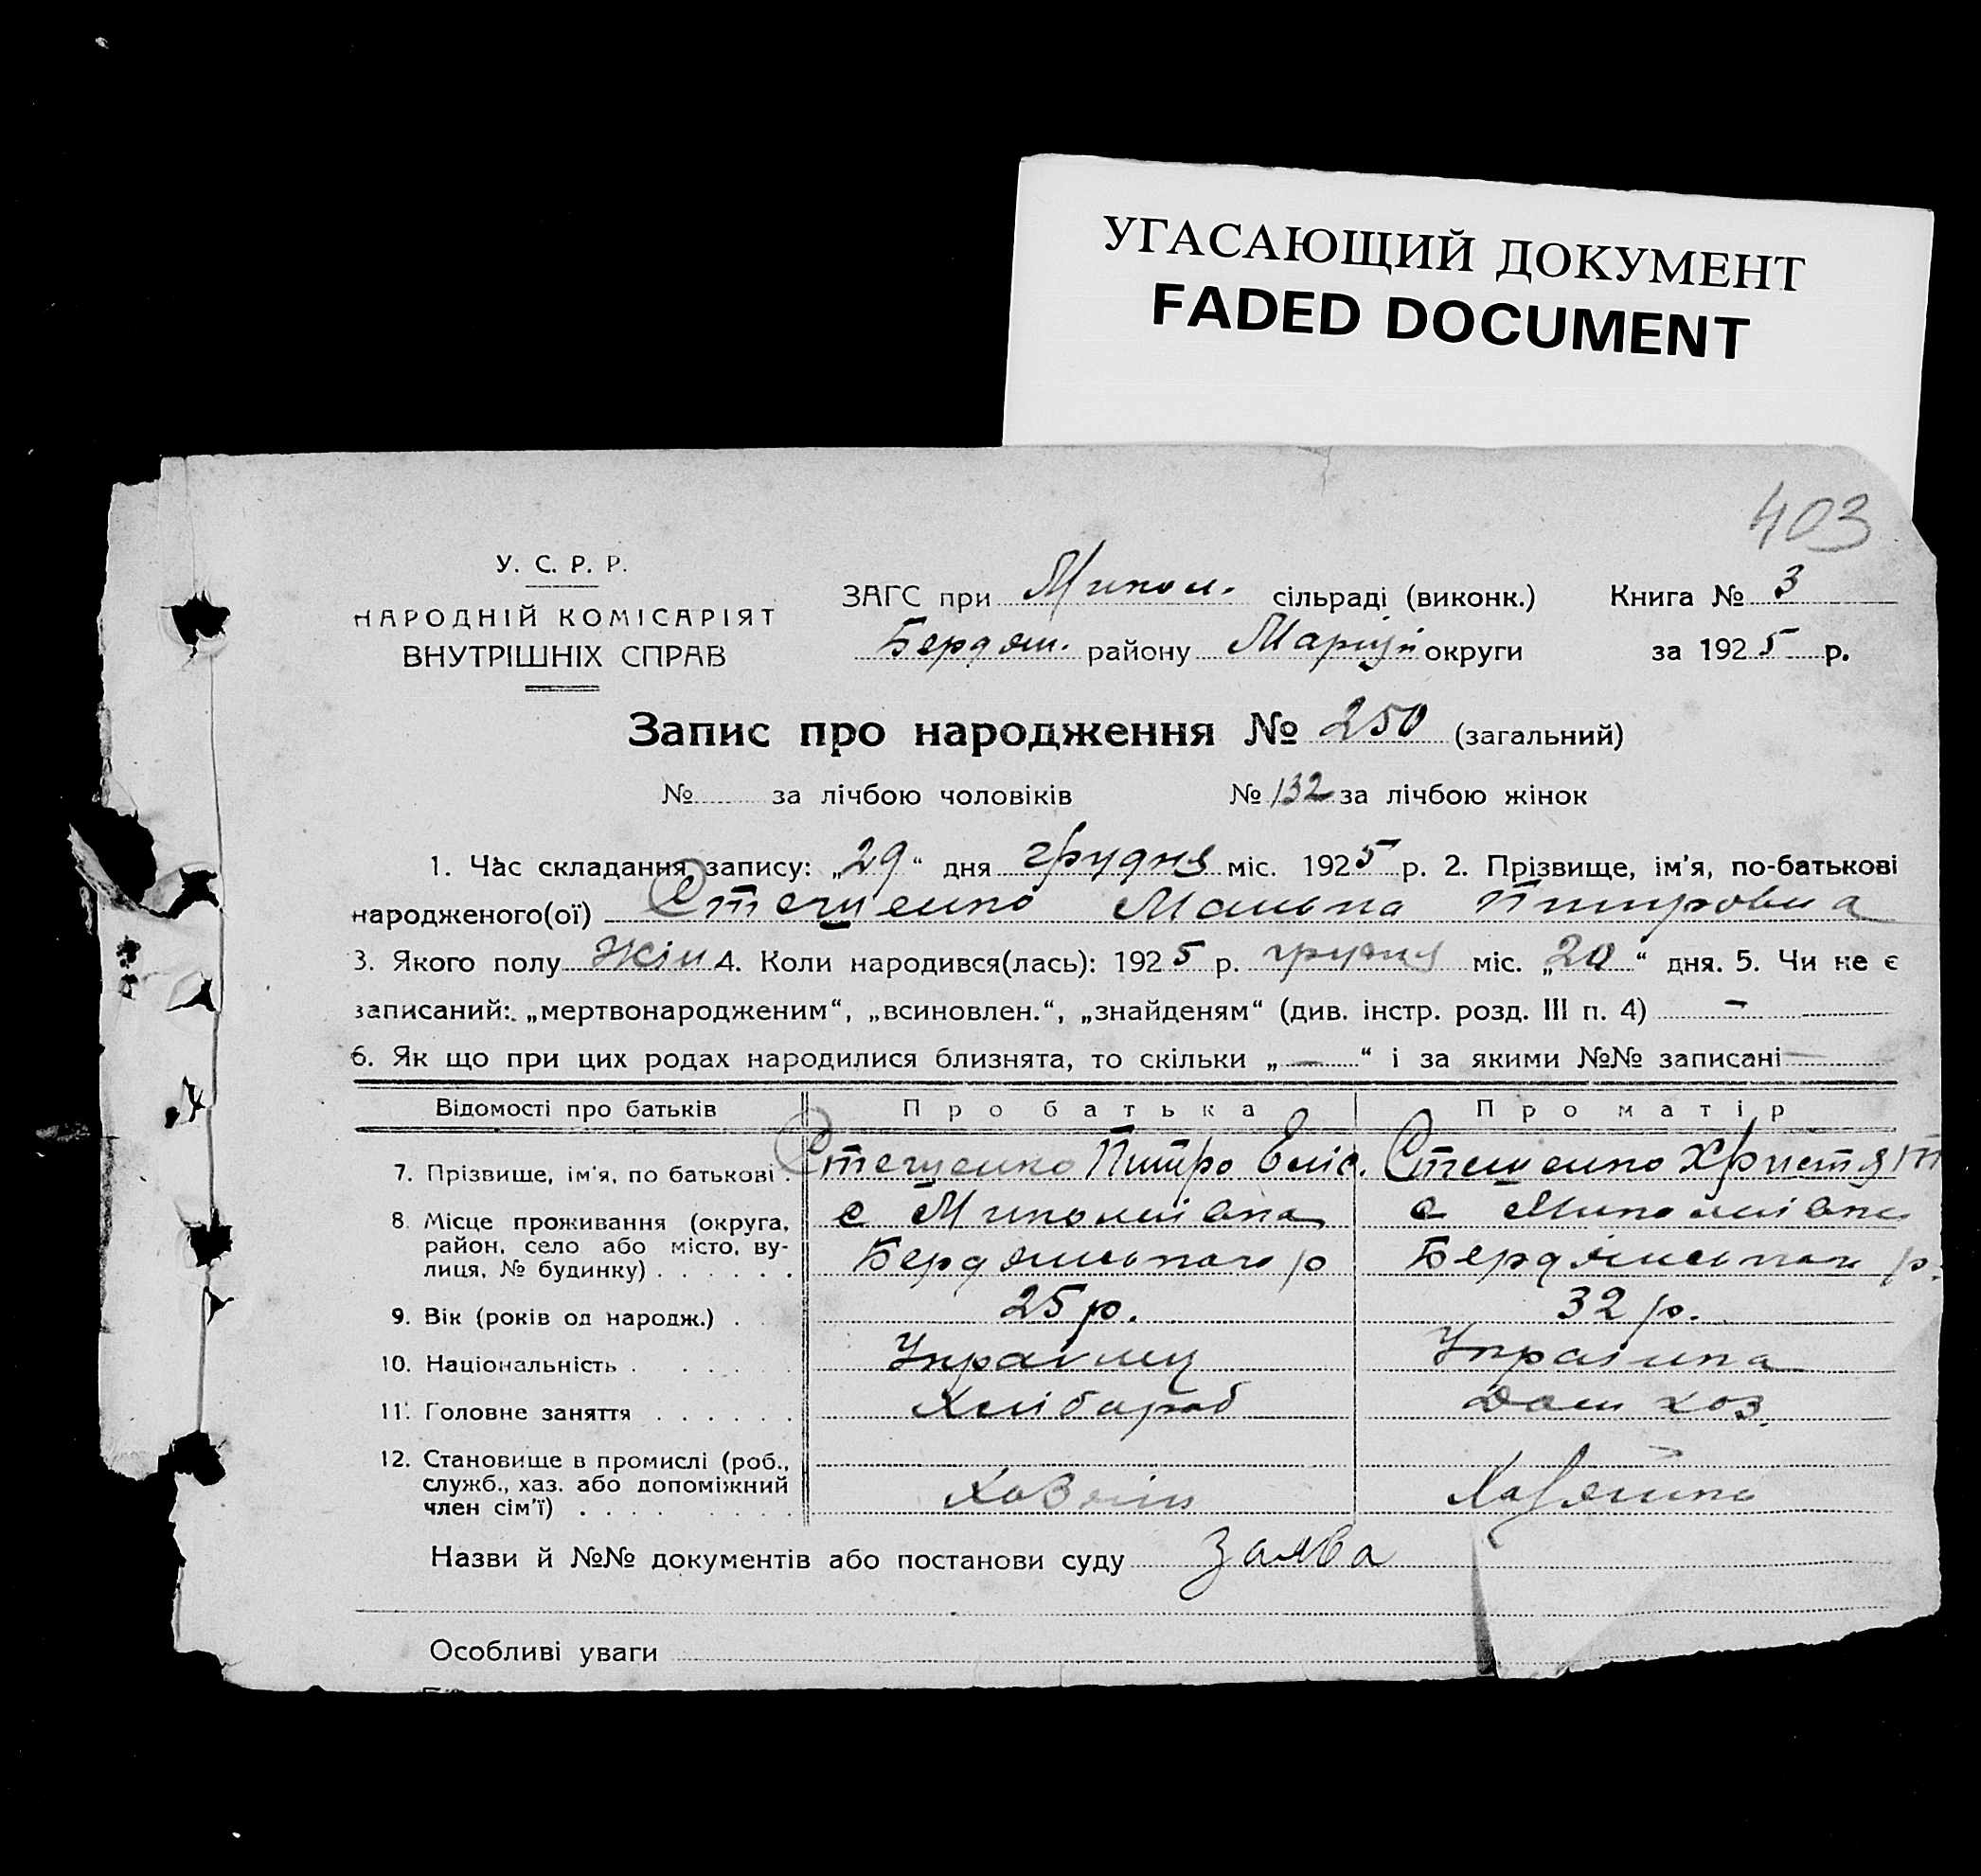 УГАСАЮЩИЙ ДОКУМЕНТ
FADED DOCUMENT
403
У. С. Р. Р.
НАРОДНІЙ КОМІСАРІЯТ
ВНУТРІШНІХ СПРАВ
ЗАГС при Микол. сільраді (виконк.) Книга № 3
Бердян. району Маріуп округи за 1925 р.
Запис про народження № 250 (загальний)
№ за лічбою чоловіків № 132 за лічбою жінок
1. Час складання запису: „29“ дня грудня міс. 1925 р. 2. Прізвище, ім'я, по-батькові
народженого(ої) Стещенко Манька Питровна
3. Якого полу Жін 4. Коли народився(лась): 1925 р. грудня міс. „20“ дня. 5. Чи не є
записаний: „мертвонародженим“, „всиновлен.“, „знайденям“ (див. інстр. розд. III п. 4) –
6. Як що при цих родах народилися близнята, то скільки „—“ і за якими №№ записані —
Відомості про батьків Про батька Про матір
7. Прізвище, ім'я, по батькові . Стещенко Питро Еліс. Стещенко Христя
8. Місце проживання (округа, район, село або місто, вулиця, № будинку) . . . . . .
с Миколаівка с Миколаівка
Бердянського р Бердянського р.
9. Вік (років од народж.) . . 25 р. 32 р.
10. Національність . . . . . Украінец Украінка
11. Головне заняття . . . . . . Хлібороб Дом хоз.
12. Становище в промислі (роб., служб., хаз. або допоміжний член сім'ї) . . . . . . . .
Хозяін Хазяйка
Назви й №№ документів або постанови суду Заява
Особливі уваги